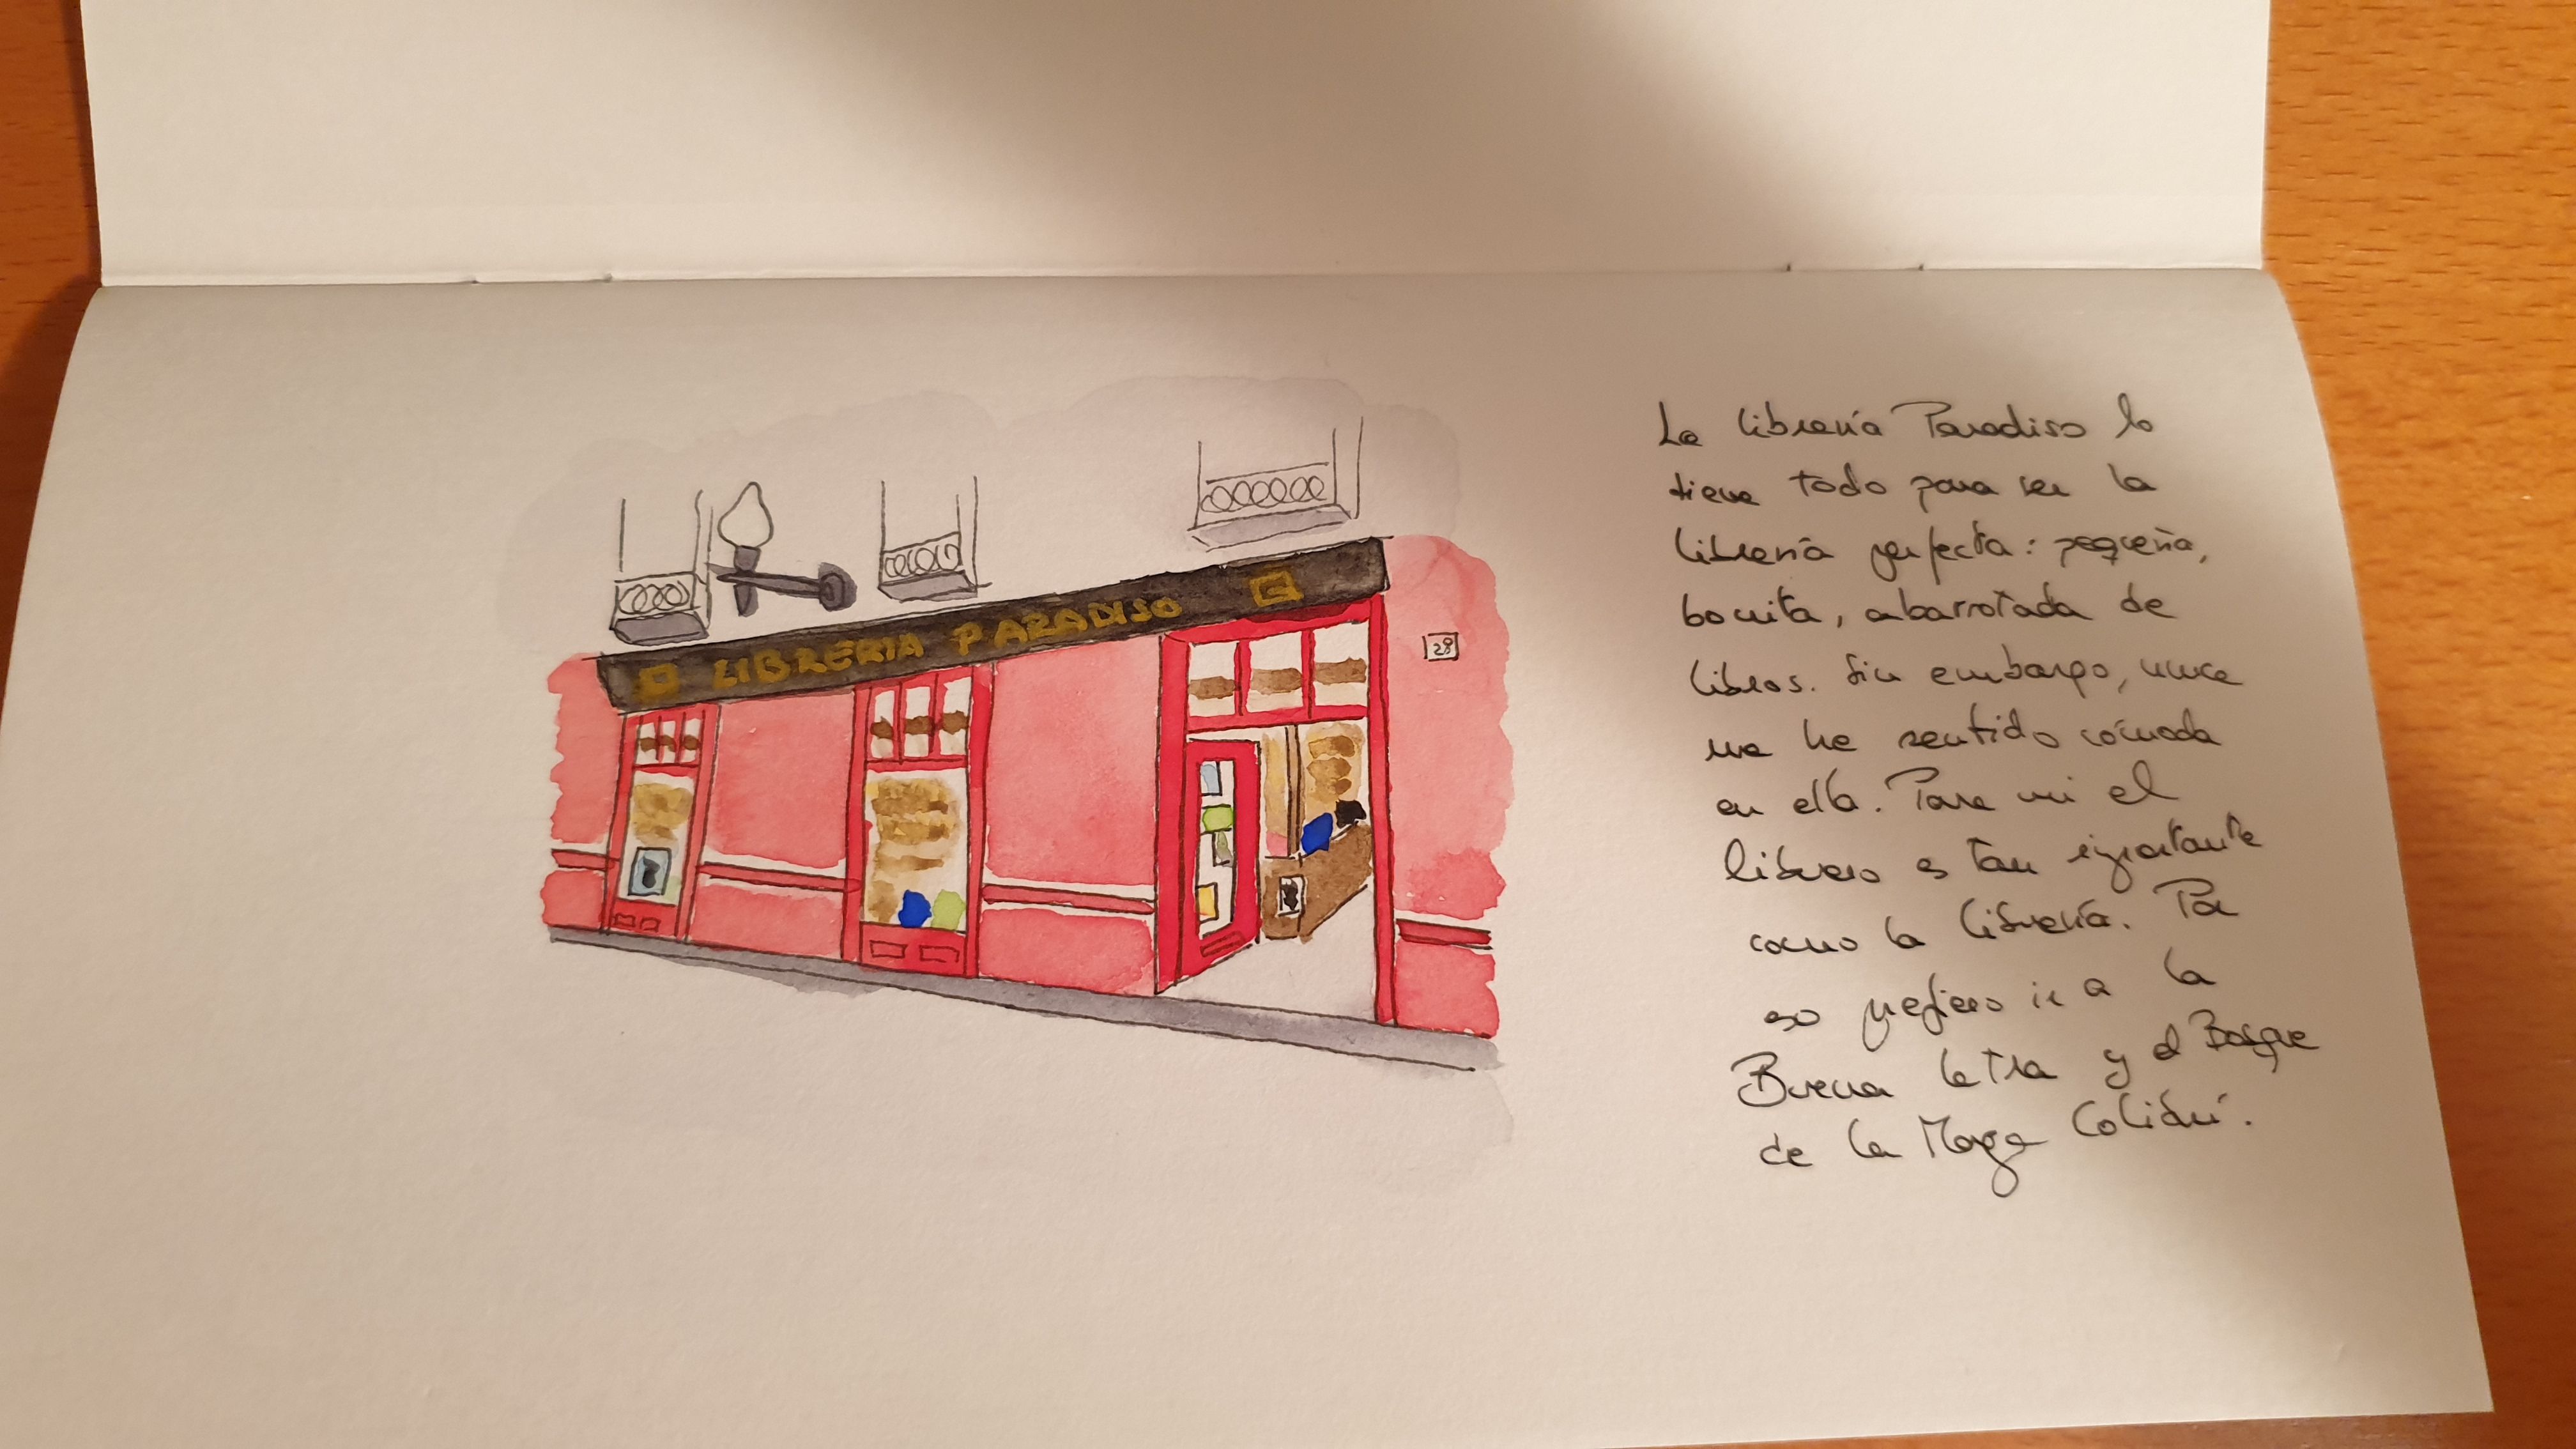 LIBRERIA PARADISO
28
La librería Paradiso lo
tiene todo para ser la
librería perfecta: pequeña,
bonita, abarrotada de
libros. Sin embargo, nunca
me he sentido cómoda
en ella. Para mi el
librero es tan importante
como la librería. Por
eso prefiero ir a la
Buena letra y el Bosque
de la Maga Colibrí.